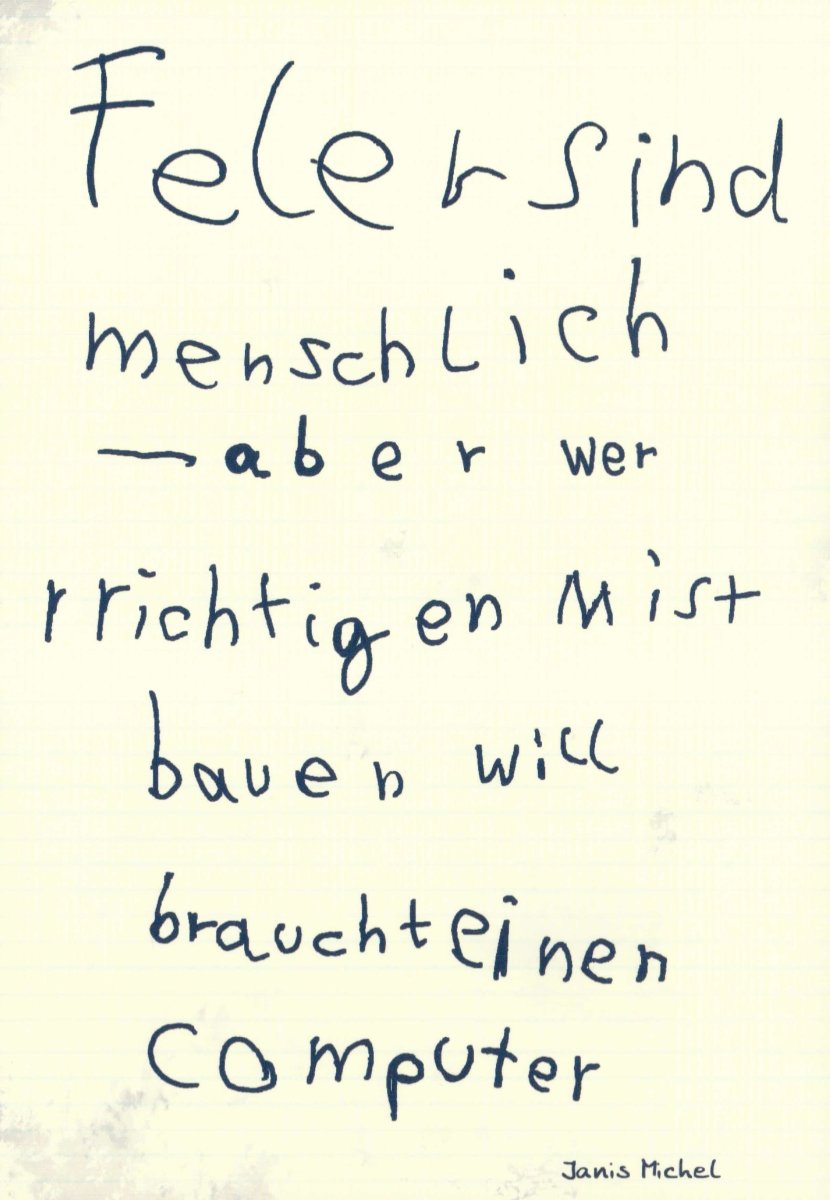 Feler sind
menschlich
— aber wer
rrichtigen Mist
bauen will
braucht einen
Computer
Janis Michel